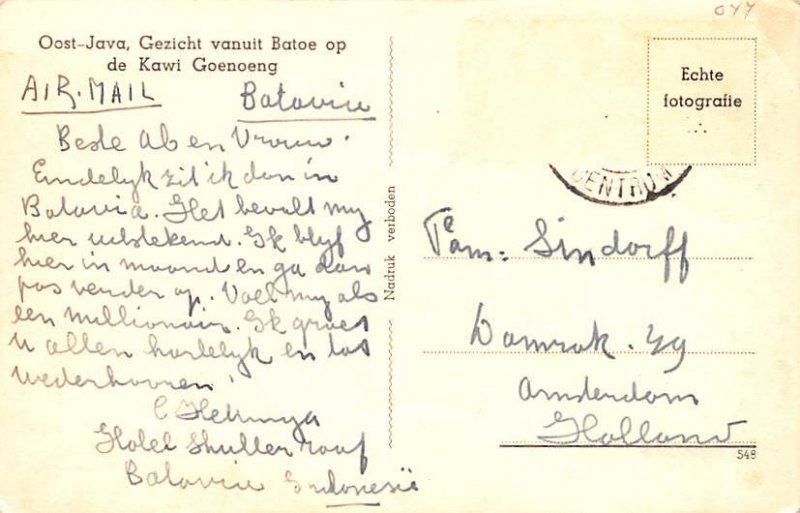 044
Oost-Java, Gezicht vanuit Batoe op
de Kawi Goenoeng
AIR. MAIL
Batavia
Beste Ab en Vrouw.
Eindelyk zit ik dan in
Batavia. Het bevalt my
hier uitstekend. Ik blyf
hier in maand en ga dan
pas verder op. Voel my als
een millionair. Ik groet
u allen hartelyk en tot
wederhooren!
Hotel Shutterraaf
Batavia Indonesië
Nadruk verboden
Echte
fotografie
CENTRUM
Fam: Sindorff
Damrak. 49
Amsterdam
Holland
548